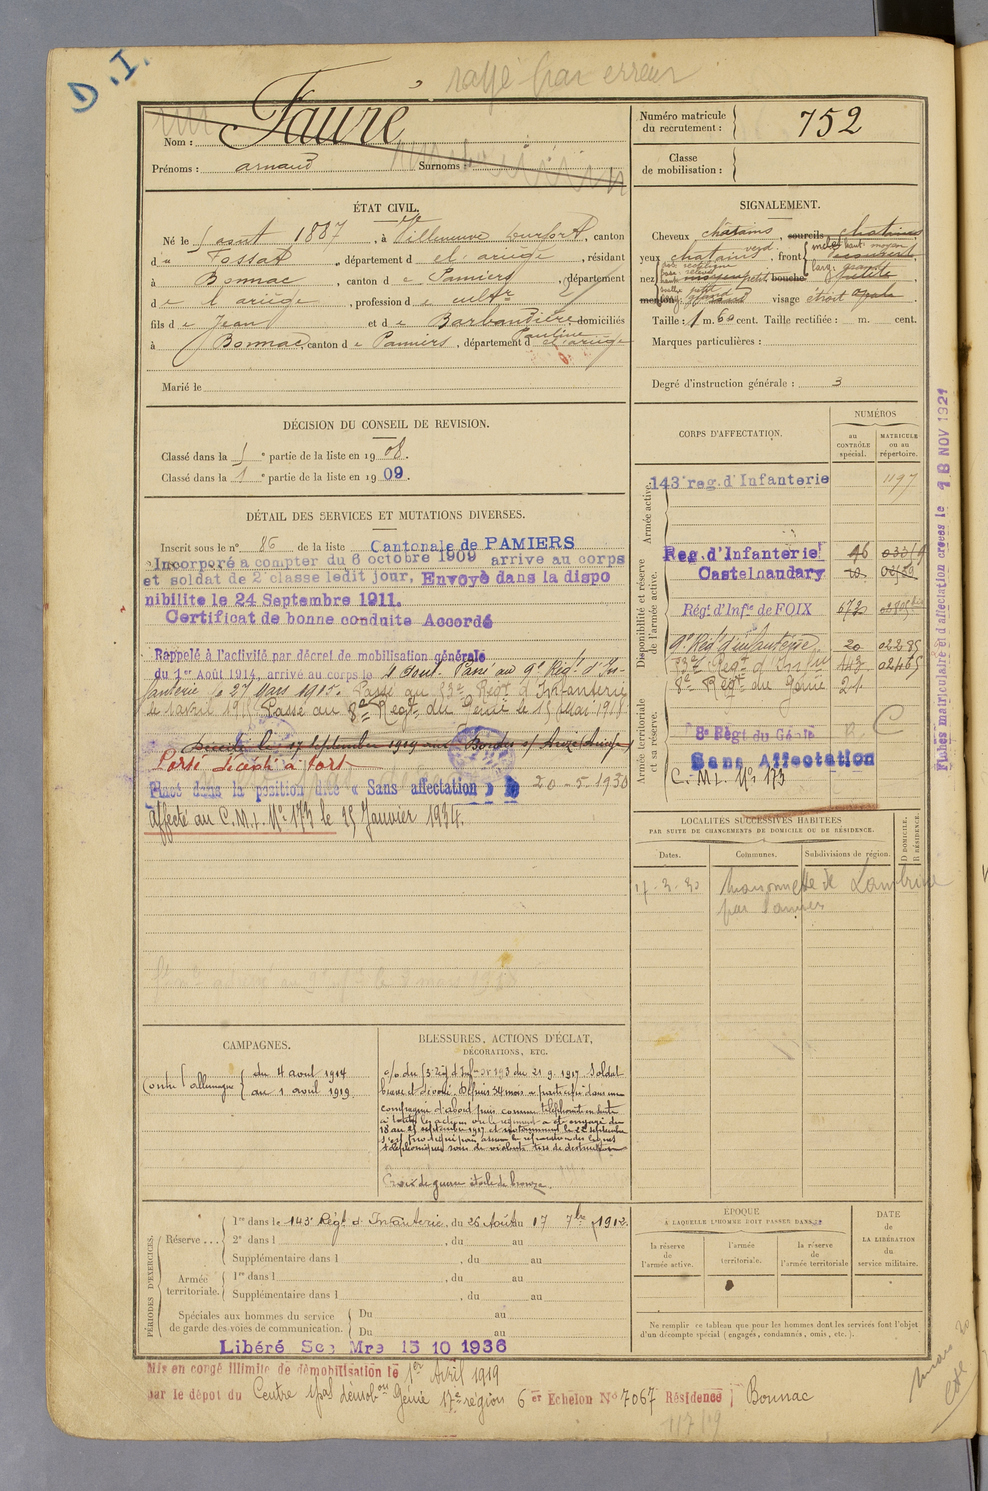 D.I.
rayé par erreur
Nom : Faure
Prénoms : arnaud Surnoms :
Numéro matricule du recrutement : 752
Classe de mobilisation :
ÉTAT CIVIL.
Né le 1 août 1887, à Villeneuve Durfort, canton
de Fossat, département de l'ariège, résidant
à Bonnac, canton de Pamiers, département
de l'ariège, profession de cultr
fils de Jean et de Barbandière Pauline domiciliés
à Bonnac, canton de Pamiers, département d el'ariège
Marié le
SIGNALEMENT.
Cheveux châtains, sourcils chatains
yeux chatains verd, front
nez bouche
menton visage étroit
Taille : 1 m. 60 cent. Taille rectifiée : m. cent.
Marques particulières :
Degré d'instruction générale : 3
DÉCISION DU CONSEIL DE REVISION.
Classé dans la 1e partie de la liste en 1908.
Classé dans la 1e partie de la liste en 1909.
DÉTAIL DES SERVICES ET MUTATIONS DIVERSES.
Inscrit sous le n° 86 de la liste Cantonale de PAMIERS
Incorporé a compter du 6 octobre 1909 arrive au corps
et soldat de 2e classe ledit jour. Envoyé dans la dispo
nibilite le 24 Septembre 1911.
Certificat de bonne conduite Accordé
Rappelé à l'activité par décret de mobilisation générale
du 1er Août 1914, arrivé au corps le 4 Aout. Passé au 9e Régt d'In-
fanterie le 27 Mars 1915. Passé au 53e Régt d'Infanterie
le 1 avril 19 Passé au 8e Regt du Génie le 15 Mai 1918
Décédé le 17 Septembre 1919
Porté décédé à tort
Placé dans la position dite « Sans affectation » le 20-5-1930
Affecté au C.M.I. N° 173 le 15 Janvier 1934.
CORPS D'AFFECTATION.
NUMÉROS
au CONTRÔLE spécial.
MATRICULE ou au répertoire.
Armée active.
143e reg. d'Infanterie 1197
Disponibilité et réserve de l'armée active.
Reg. d'Infanterie 46
Castelnaudary
Régt d'Infie de FOIX 673
9e Rég d'infanterie 20 02285
53e Regt d'Infie 443 02465
8e Regt du Génie 24
Armée territoriale et sa réserve.
8e Régt du Génie R. C
Sans Affectation
C.M.I. N° 173
Fiches matriculaire et d'affectation créées le 18 NOV 1921
LOCALITÉS SUCCESSIVES HABITÉES
PAR SUITE DE CHANGEMENTS DE DOMICILE OU DE RÉSIDENCE.
Dates. Communes. Subdivisions de région. D DOMICILE. R RÉSIDENCE.
17-3-30 Maisonnette de
par Pamiers
CAMPAGNES.
Contre l'allemagne du 4 aout 1914
au 1 avril 1919
BLESSURES, ACTIONS D'ÉCLAT,
DÉCORATIONS, ETC.
c/o du 53e rég d'Inf n° 193 du 21.9.1917. Soldat
brave et dévoué. Depuis 34 mois a participé dans une
compagnie d'abord puis comme téléphoniste ensuite
à toutes les actions où le régiment a été engagé du
18 au 25 septembre 1917 et notamment le 22 septembre
s'est prodigué pour assurer la réparation des lignes
téléphoniques sous de violents tirs de destruction
Croix de guerre étoile de bronze.
PÉRIODES D'EXERCICES.
Réserve... 1re dans le 143e Régt d'Infanterie, du 26 Août au 17 7bre 1912.
2e dans l , du au
Supplémentaire dans l , du au
Armée territoriale. 1re dans l , du au
Supplémentaire dans l , du au
Spéciales aux hommes du service de garde des voies de communication. Du au
Du au
ÉPOQUE
A LAQUELLE L'HOMME DOIT PASSER DANS
la réserve de l'armée active.
l'armée territoriale.
la réserve de l'armée territoriale
DATE de LA LIBÉRATION du service militaire.
Ne remplir ce tableau que pour les hommes dont les services font l'objet
d'un décompte spécial (engagés, condamnés, omis, etc.).
Libéré Sce Mre 15 10 1936
Mis en congé illimité de démobilisation le 1er Avril 1919
par le dépot du Centre démobon Génie 17e région 6er Echelon N° 7067 Résidence Bonnac